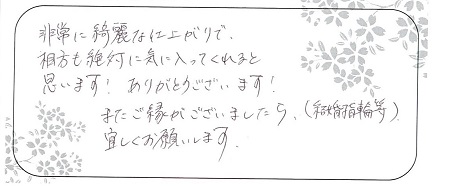 非常に綺麗な仕上がりで、
相方も絶対に気に入ってくれると
思います！ ありがとうございます！
またご縁がございましたら、(結婚指輪等)
宜しくお願いします.